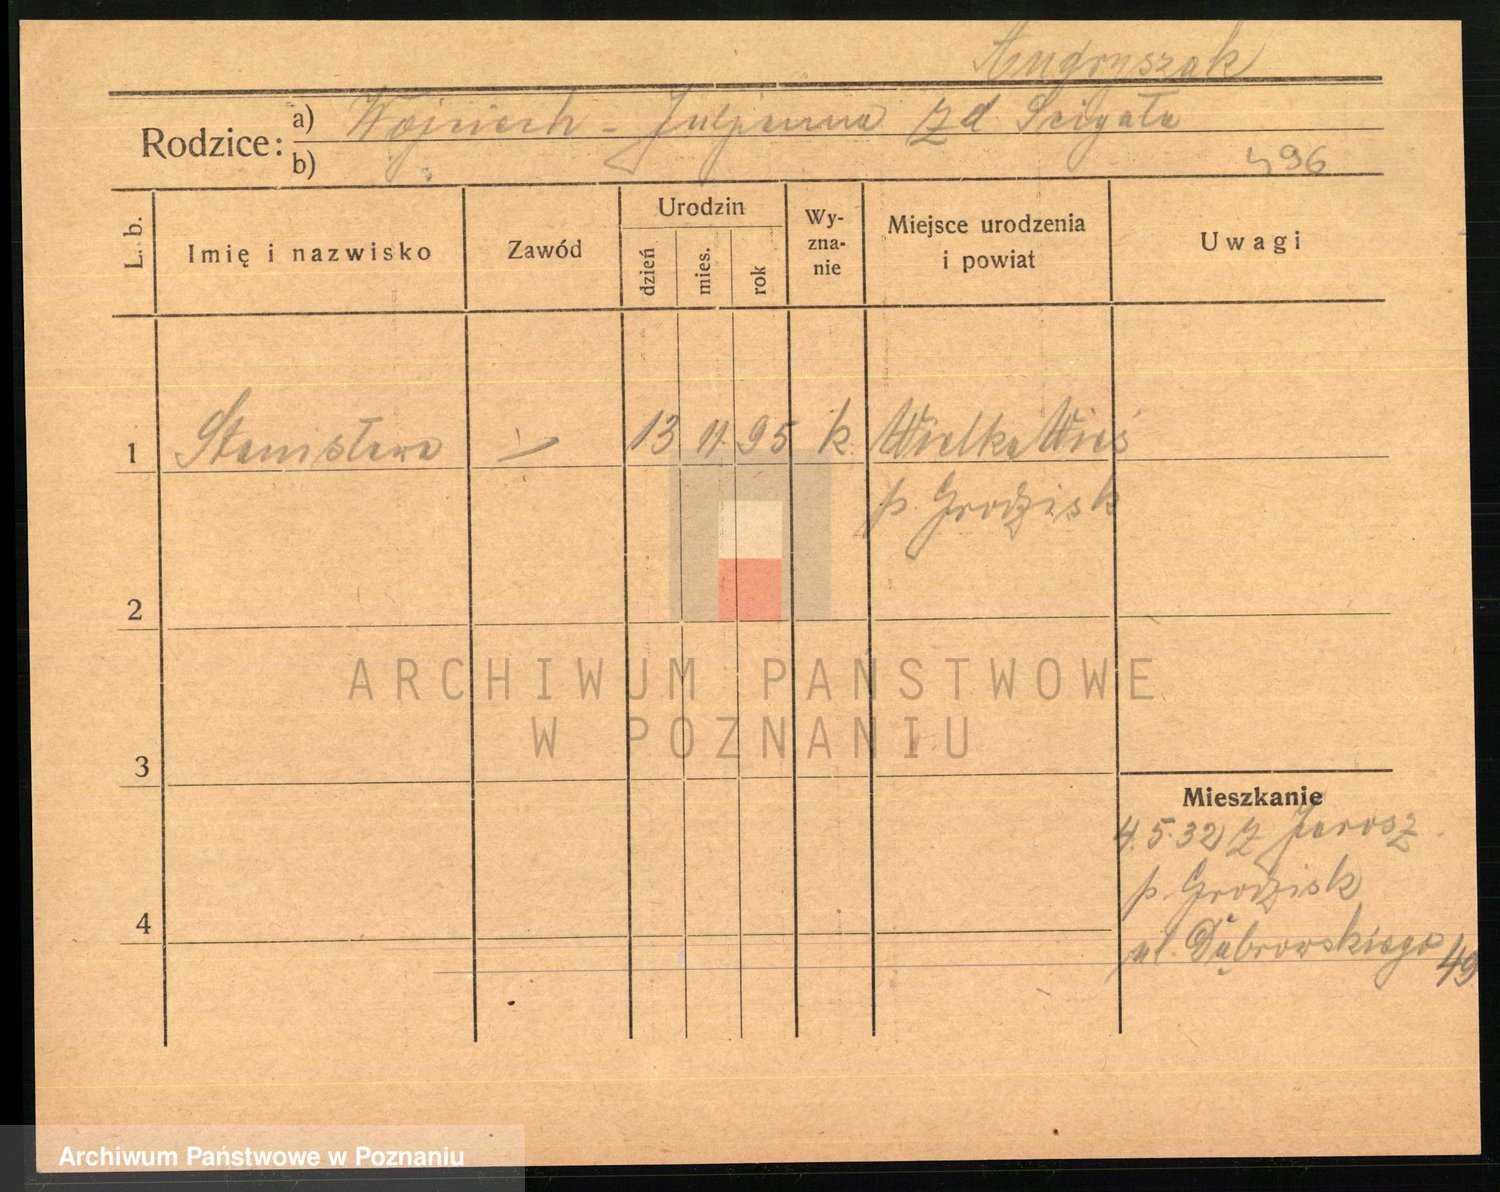 Andryszak
Rodzice: a) Wojciech - Juljanna z d Ścigała
b)
496
L. b.
Imię i nazwisko
Zawód
Urodzin
dzień
mies.
rok
Wy-
zna-
nie
Miejsce urodzenia
i powiat
Uwagi
1 Stanisława 13 11 95 k Wielka Wieś
p. Grodzisk
2
ARCHIWUM PAŃSTWOWE
W POZNANIU
3
Mieszkanie
4.5.32) z Jarosz
p. Grodzisk
4
ul. Dąbrowskiego 49
Archiwum Państwowe w Poznaniu